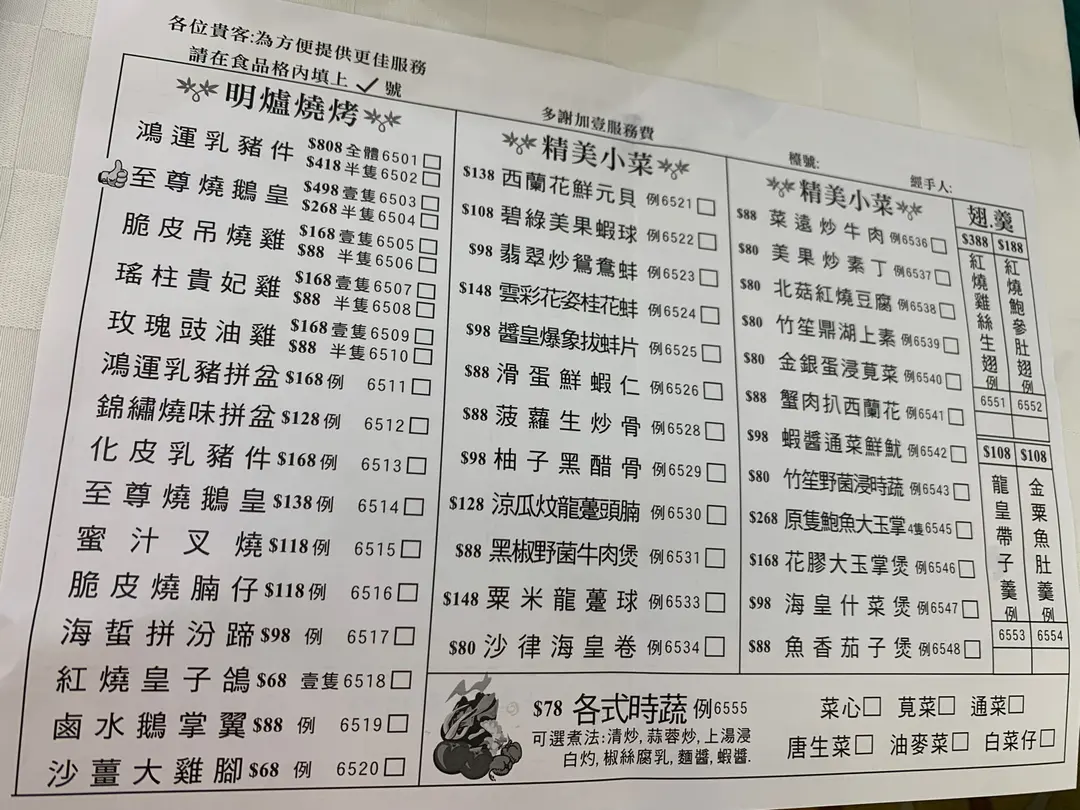 各位貴客:為方便提供更佳服務
請在食品格內填上✓號
多謝加壹服務費
檯號:
經手人:
明爐燒烤
鴻運乳豬件 $808全體6501□
$418半隻6502□
至尊燒鵝皇 $498壹隻6503□
$268半隻6504□
脆皮吊燒雞 $168壹隻6505□
$88 半隻6506□
瑤柱貴妃雞 $168壹隻6507□
$88 半隻6508□
玫瑰豉油雞 $168壹隻6509□
$88 半隻6510□
鴻運乳豬拼盆$168例 6511□
錦繡燒味拼盆$128例 6512□
化皮乳豬件$168例 6513□
至尊燒鵝皇$138例 6514□
蜜汁叉燒$118例 6515□
脆皮燒腩仔$118例 6516□
海蜇拼汾蹄$98 例 6517□
紅燒皇子鴿$68 壹隻6518□
鹵水鵝掌翼$88 例 6519□
沙薑大雞腳$68 例 6520□
精美小菜
$138 西蘭花鮮元貝 例6521□
$108 碧綠美果蝦球 例6522□
$98 翡翠炒鴛鴦蚌 例6523□
$148 雲彩花姿桂花蚌 例6524□
$98 醬皇爆象拔蚌片 例6525□
$88 滑蛋鮮蝦仁 例6526□
$88 菠蘿生炒骨 例6528□
$98 柚子黑醋骨 例6529□
$128 涼瓜炆龍躉頭腩 例6530□
$88 黑椒野菌牛肉煲 例6531□
$148 粟米龍躉球 例6533□
$80 沙律海皇卷 例6534□
精美小菜
$88 菜遠炒牛肉 例6536□
$80 美果炒素丁 例6537□
$80 北菇紅燒豆腐 例6538□
$80 竹笙鼎湖上素 例6539□
$80 金銀蛋浸莧菜 例6540□
$88 蟹肉扒西蘭花 例6541□
$98 蝦醬通菜鮮魷 例6542□
$80 竹笙野菌浸時蔬 例6543□
$268 原隻鮑魚大玉掌4隻6545□
$168 花膠大玉掌煲 例6546□
$98 海皇什菜煲 例6547□
$88 魚香茄子煲 例6548□
翅.羹
$388 紅燒雞絲生翅 例 6551
$188 紅燒鮑參肚翅 例 6552
$108 龍皇帶子羹 例 6553
$108 金粟魚肚羹 例 6554
$78 各式時蔬 例6555
可選煮法:清炒, 蒜蓉炒, 上湯浸
白灼, 椒絲腐乳, 麵醬, 蝦醬.
菜心□ 莧菜□ 通菜□
唐生菜□ 油麥菜□ 白菜仔□